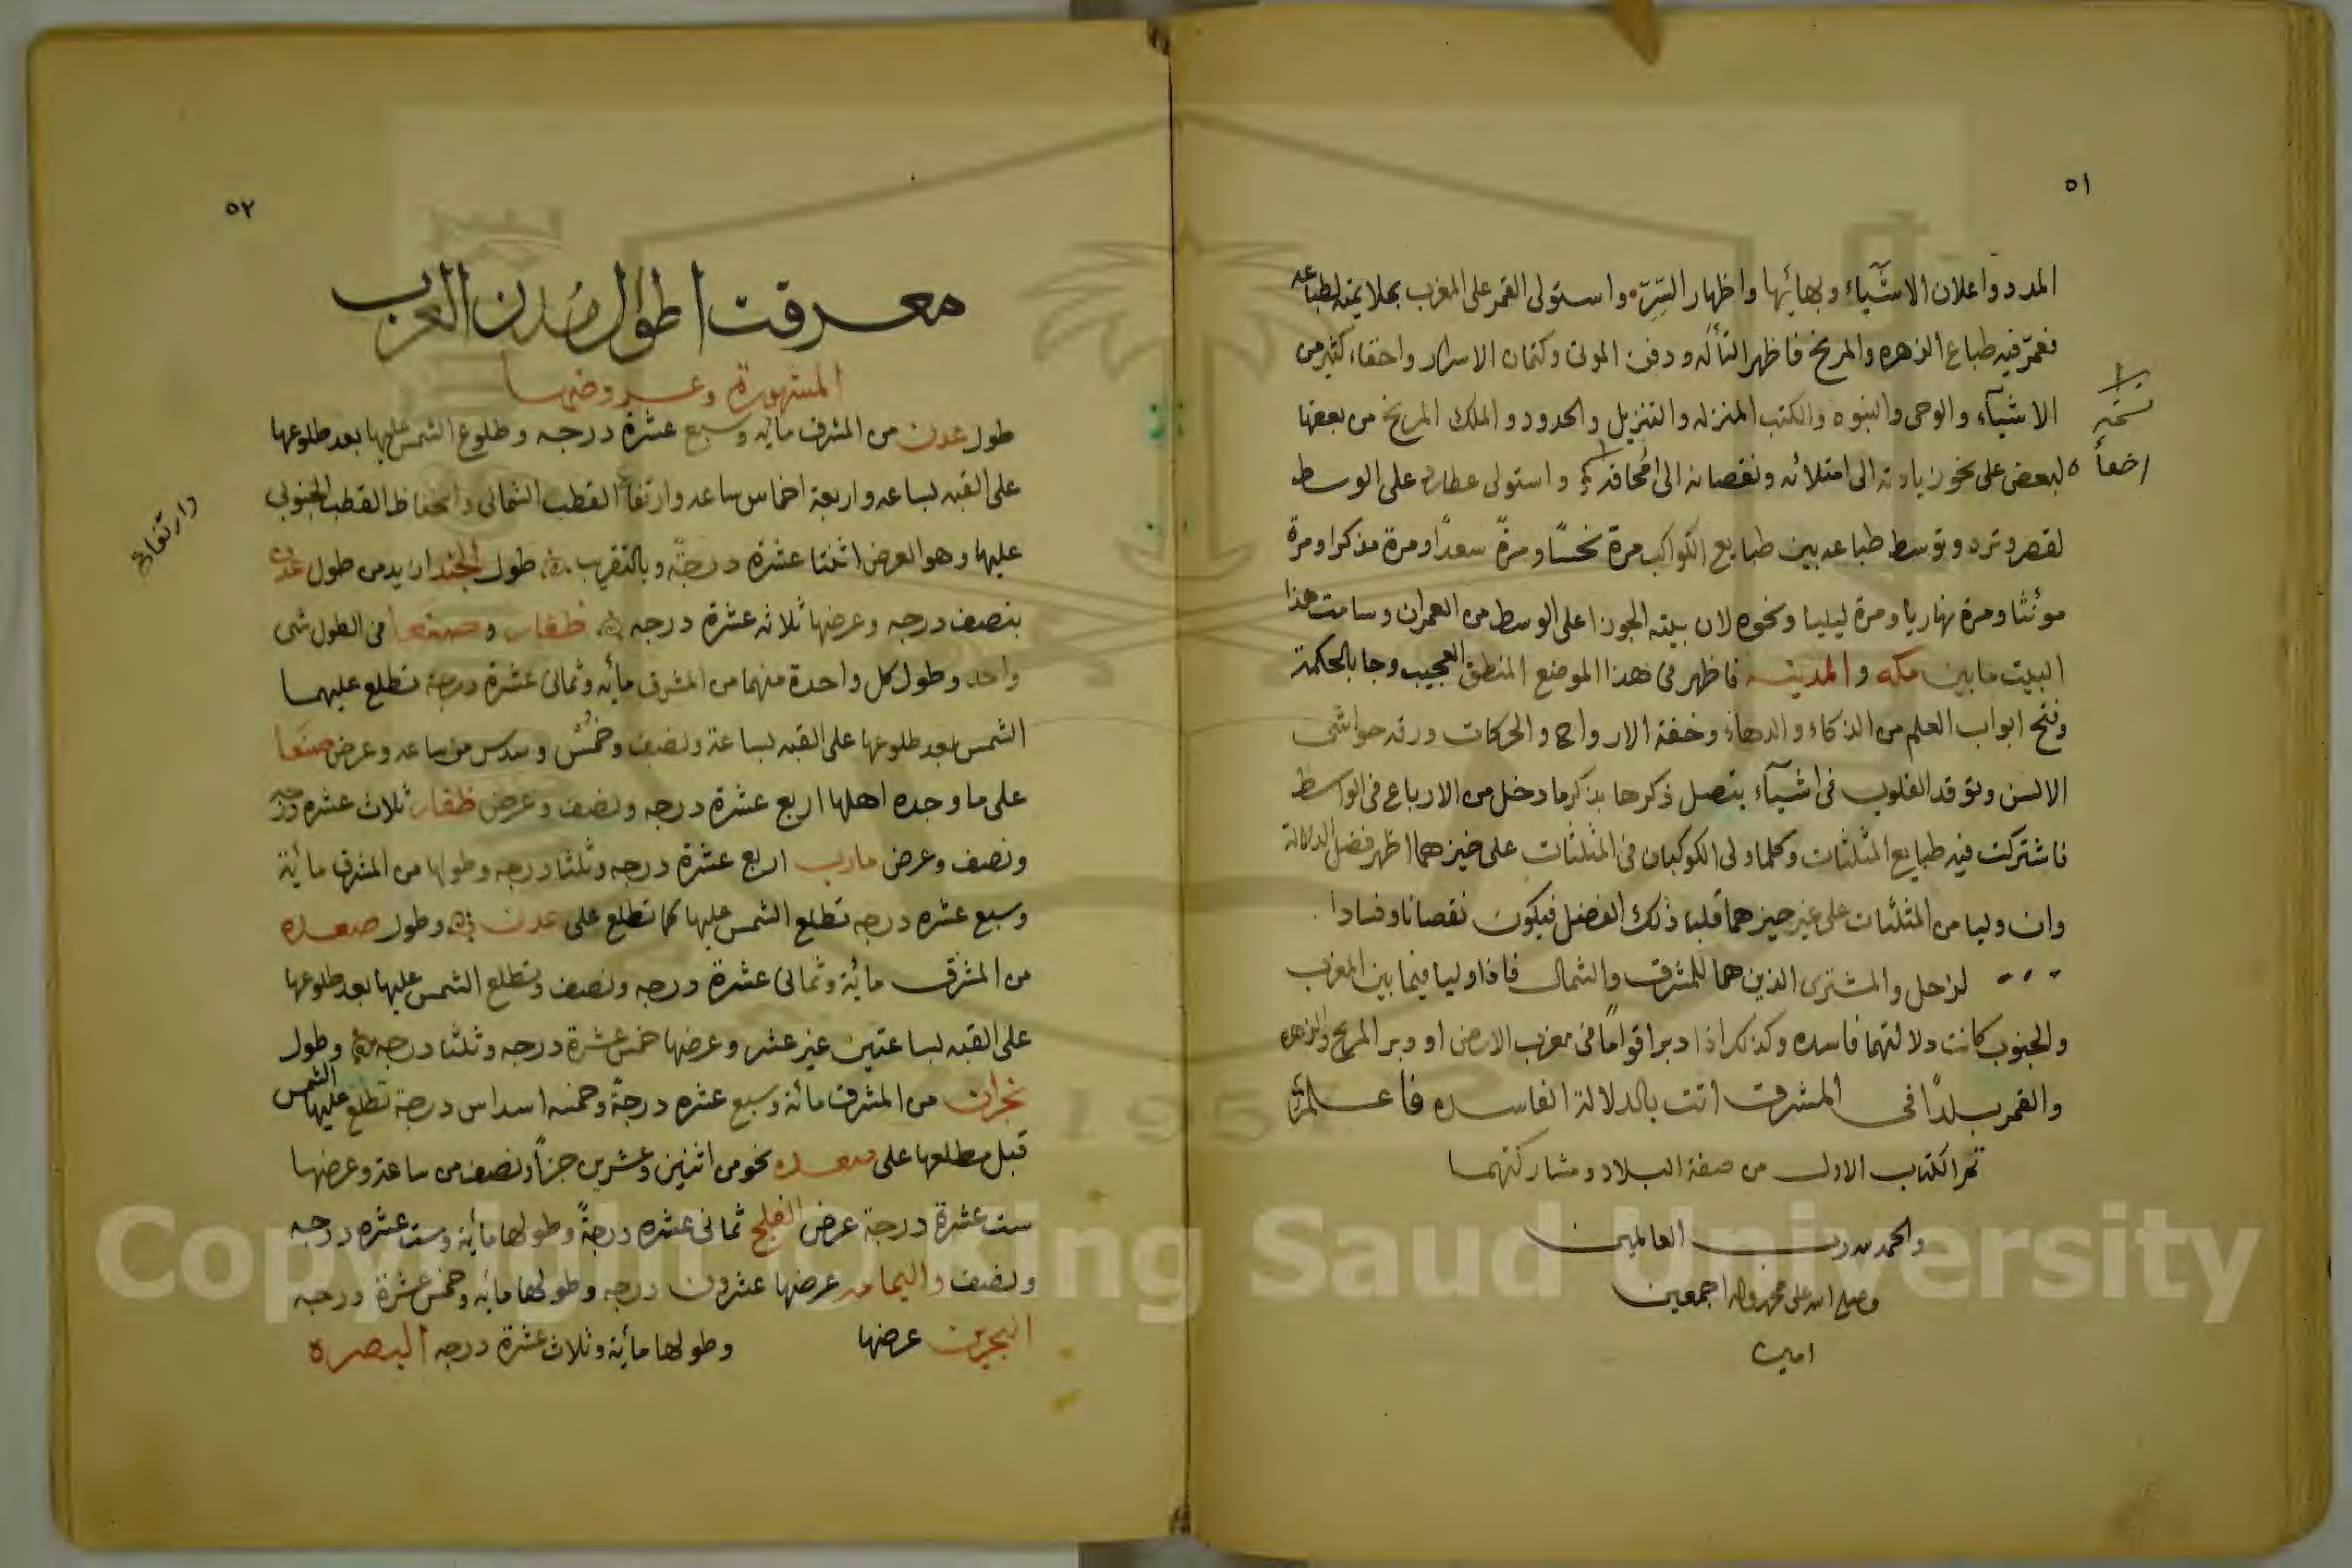 ٥١
المدد واعلان الاشيآء وبهائها واظهار السِّرّ واستولى القمر على المغرب بملايمته لطباعه
فعمّر فيه طباع الزهره والمريخ فاظهر التألّه ودفن الموتى وكتمان الاسرار واخفاء كثير من
الاشيآء والوحى والنبوه والكتب المنزله والتنزيل والحدود والملك المريخ من بعضها
لبعض على نحو زيادته الى امتلائه ونقصانه الى امحاقه واستولى عطارد على الوسط
نسخه
لقصر وتره وتوسط طباعه بين طبايع الكواكب مرة نحسًا ومرّة سعدًا ومرة مذكرا ومرة
مونثا ومرة نهاريا ومرة ليليا ونحوه لان بيته الجوزا على الوسط من العمران وسامت هذا
البيت ما بين مكه والمدينه فاظهر فى هذا الموضع المنطق العجيب وجا بالحكمة
وفتح ابواب العلم من الذكاء والدهاء وخفة الارواح والحركات ورقه حواشى
الالسن وتوقد القلوب فى اشيآء يتصل ذكرها بذكر ما دخل من الارباع فى الواسط
فاشتركت فيه طبايع المثلثات وكلما ولى الكوكبان فى المثلثات على حيزهما اظهر فضل الدلالة
وان وليا من المثلثات على غير حيزهما قلبا ذلك الفضل فيكون نقصانا وفسادا
لزحل والمشترى الذين هما للمشرق والشمال فاذا وليا فيما بين المغرب
والجنوب كانت دلالتهما فاسده وكذلك اذا دبرا قوامًا فى مغرب الارض او دبر المريخ والزهره
والقمر بلدًا فى المشرق اتت بالدلالة الفاسده فاعلم
تم الكتاب الاول من صفة البلاد ومشاركتهما
والحمد لله رب العالمين
وصلى الله على محمد واله اجمعين
امين
٥٢
معرفت اطوال مدن العرب
المشهورة وعروضها
طول عدن من المشرق مائه وسبع عشرة درجه وطلوع الشمس عليها بعد طلوعها
على القبه بساعه واربعة اخماس ساعه وارتفاع القطب الشمالى وانحفاظ القطب الجنوبى
وارتفاع
عليها وهو العرض اثنتا عشرة درجةً وبالتقريب طول الجند ازيد من طول عدن
بنصف درجه وعرضها ثلاثه عشرة درجه ظفار وصنعا فى الطول شى
واحد وطول كل واحدة منهما من المشرق مأئه وثمانى عشرة درجة تطلع عليهما
الشمس بعد طلوعها على القبه بساعة ونصف وخُمْس وسدس من ساعه وعرض صنعا
على ما وجده اهلها اربع عشرة درجه ونصف وعرض ظفار ثلاث عشره درجه
ونصف وعرض مارب اربع عشرة درجه وثلثا درجه وطولها من المشرق مائة
وسبع عشره درجه تطلع الشمس عليها كما تطلع على عدن وطول صعده
من المشرق مائة وثمانى عشرة درجه ونصف وتطلع الشمس عليها بعد طلوعها
على القبه بساعتين غير عشر وعرضها خمس عشرة درجه وثلثا درجه وطول
نجران من المشرق مائة وسبع عشره درجةً وخمسه اسداس درجة تطلع عليها الشمس
قبل مطلعها على صعده نحو من اثنين وعشرين جزأ ونصف من ساعة وعرضها
ست عشرة درجة عرض الفلج ثمانى عشره درجةً وطولها مأية وست عشره درجه
ونصف واليمامه عرضها عشرون درجه وطولها مأيه وخمس عشرة درجه
البحرين عرضها وطولها مأية وثلاث عشرة درجه البصره
Copyright © King Saud University
1957